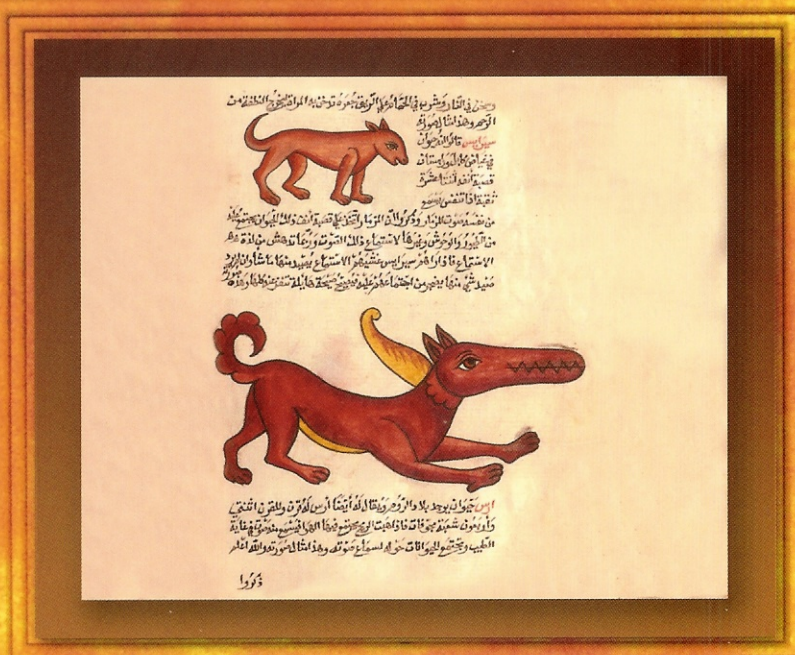 في النار ويشرب في على الريق بعره تدخن به المراة يخرج النطفة من
الرحم وهذا مثال صورته
سيرانس قالوا انه حيوان
في غياض كابل وزابلستان
قصبة انفه اثنتا عشرة
ثقبة اذا تنفس يسمع
من نفسه صوت المزمار وذكروا ان المزمار اتخذ على قصبة انف ذلك الحيوان يجتمع عليه
من الطيور والوحوش وغيرها لاستماع ذلك الصوت وربما تدهش من لذة
الاستماع فاذا راهم سيرانس غشيهم الاستماع يصيد منها ما شا وان لم يرد
صيد شي منها يضجر من اجتماعهم عليه فيصيح صيحة هايلة تنفر عنه كلها وهذه صورته
ارس حيوان يوجد ببلاد الروم ويقال له أيضا ارس له قرن وللقرن اثنتي
وأربعون شعبة مجوفات فاذا هبت الريح يجتمع فيها الهوا فيسمع منه صوت في غاية
الطيب ويجتمع الحيوانات حوله لسماع صوته وهذا مثال صورته والله اعلم
ذكروا